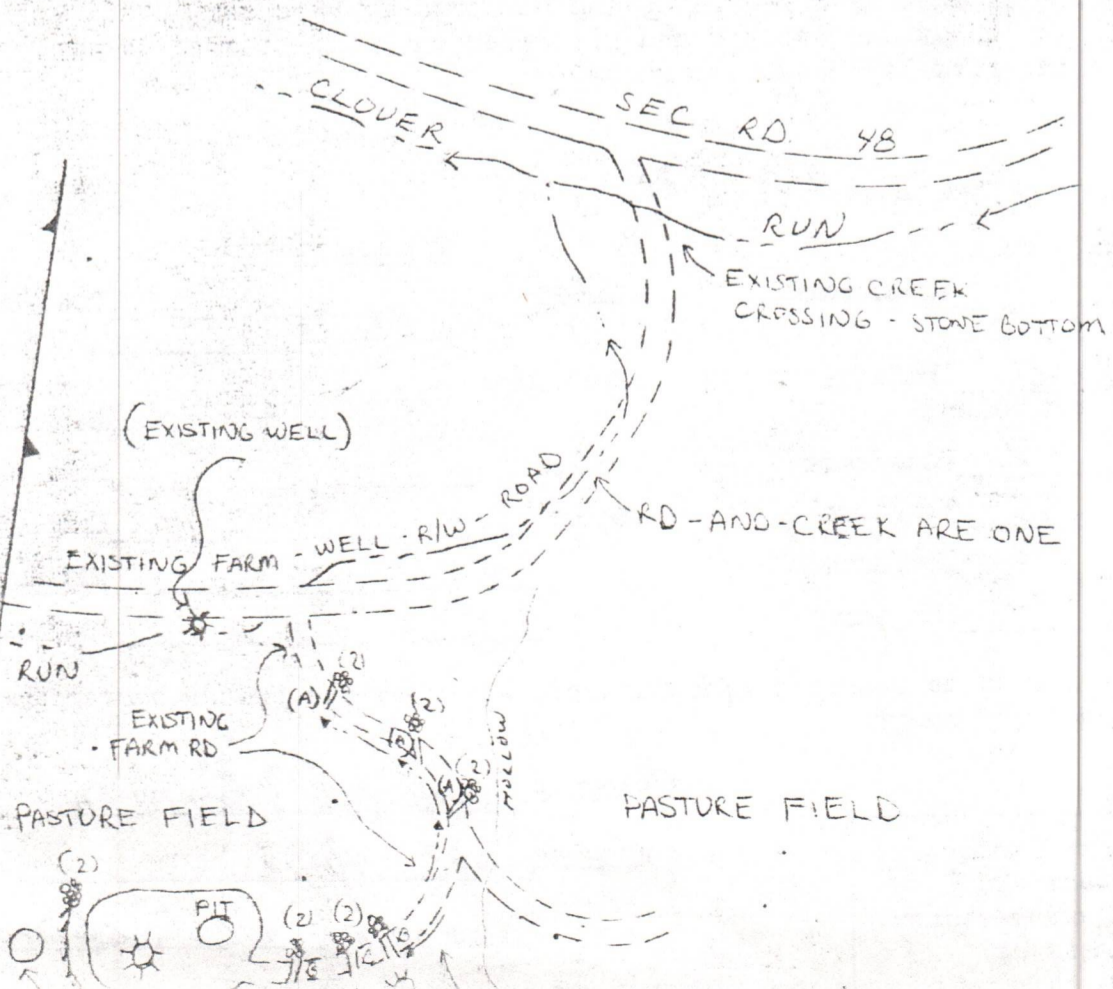 SEC RD. 48
CLOVER
RUN
EXISTING CREEK
CROSSING - STONE BOTTOM
(EXISTING WELL)
EXISTING FARM - WELL - R/W - ROAD
RD-AND-CREEK ARE ONE
RUN
(2)
(A)
(2)
EXISTING
FARM RD
(2)
(A)
HOLLOW
PASTURE FIELD
PASTURE FIELD
(2)
PIT
(2)
(2)